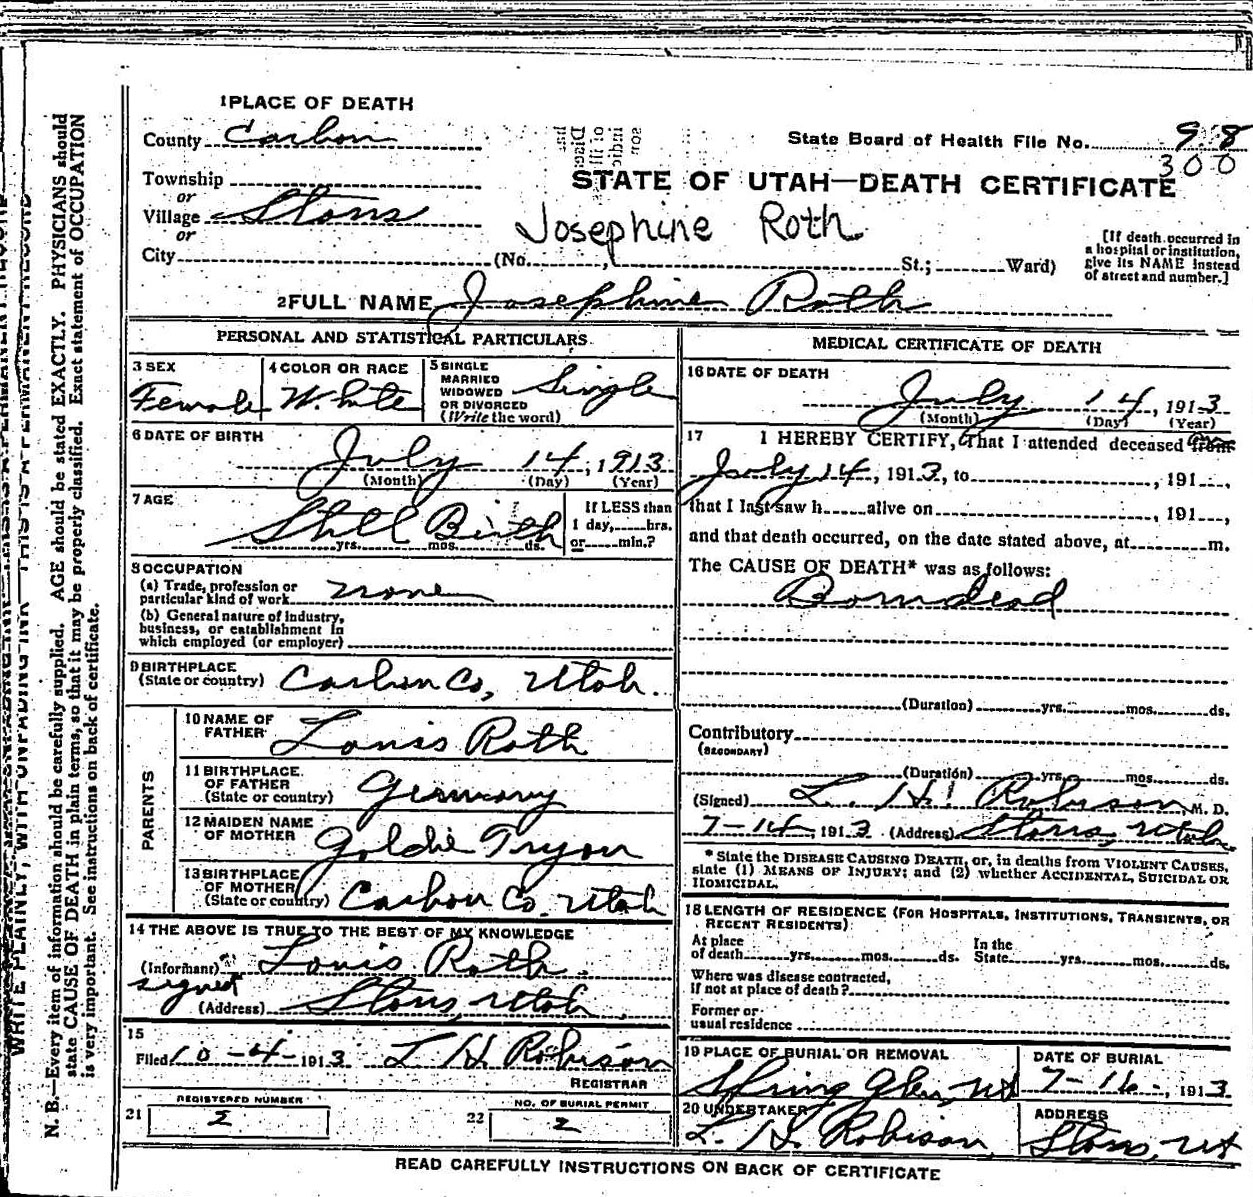 1 PLACE OF DEATH
County Carbon
State Board of Health File No. 98
300
Township
or
STATE OF UTAH—DEATH CERTIFICATE
Village Storrs
or
Josephine Roth
City (No. , St.; Ward)
[If death occurred in
a hospital or institution,
give its NAME instead
of street and number.]
2 FULL NAME Josephine Roth
PERSONAL AND STATISTICAL PARTICULARS
3 SEX
Female
4 COLOR OR RACE
White
5 SINGLE
MARRIED
WIDOWED
OR DIVORCED
(Write the word)
Single
6 DATE OF BIRTH
July 14, 1913
(Month) (Day) (Year)
7 AGE
Still Birth
yrs. mos. ds.
If LESS than
1 day, hrs.
or min.?
8 OCCUPATION
(a) Trade, profession or
particular kind of work none
(b) General nature of industry,
business, or establishment in
which employed (or employer)
9 BIRTHPLACE
(State or country) Carbon Co, Utah.
PARENTS
10 NAME OF
FATHER Louis Roth
11 BIRTHPLACE
OF FATHER
(State or country) Germany
12 MAIDEN NAME
OF MOTHER Goldie Tryon
13 BIRTHPLACE
OF MOTHER
(State or country) Carbon Co. Utah
14 THE ABOVE IS TRUE TO THE BEST OF MY KNOWLEDGE
(Informant) Louis Roth.
signed
(Address) Storrs, Utah.
15
Filed 10-4- 1913 L H Robison
REGISTRAR
21 REGISTERED NUMBER
2
22 NO. OF BURIAL PERMIT
2
MEDICAL CERTIFICATE OF DEATH
16 DATE OF DEATH
July 14, 1913
(Month) (Day) (Year)
17 I HEREBY CERTIFY, That I attended deceased from
July 14, 1913, to , 191 ,
that I last saw h alive on , 191 ,
and that death occurred, on the date stated above, at m.
The CAUSE OF DEATH* was as follows:
Born dead
(Duration) yrs. mos. ds.
Contributory
(SECONDARY)
(Duration) yrs. mos. ds.
(Signed) L. H. Robison M. D.
7-14, 1913 (Address) Storrs, Utah.
* State the DISEASE CAUSING DEATH, or, in deaths from VIOLENT CAUSES,
state (1) MEANS OF INJURY; and (2) whether ACCIDENTAL, SUICIDAL OR
HOMICIDAL.
18 LENGTH OF RESIDENCE (FOR HOSPITALS, INSTITUTIONS, TRANSIENTS, OR
RECENT RESIDENTS)
At place
of death yrs. mos. ds.
In the
State yrs. mos. ds.
Where was disease contracted,
if not at place of death?
Former or
usual residence
19 PLACE OF BURIAL OR REMOVAL
Spring Glen, Ut
DATE OF BURIAL
7-16-, 1913
20 UNDERTAKER
L. H. Robison,
ADDRESS
Storrs, Ut
READ CAREFULLY INSTRUCTIONS ON BACK OF CERTIFICATE
WRITE PLAINLY, WITH UNFADING INK THIS IS A PERMANENT RECORD
N. B.—Every item of information should be carefully supplied. AGE should be stated EXACTLY. PHYSICIANS should
state CAUSE OF DEATH in plain terms, so that it may be properly classified. Exact statement of OCCUPATION
is very important. See instructions on back of certificate.